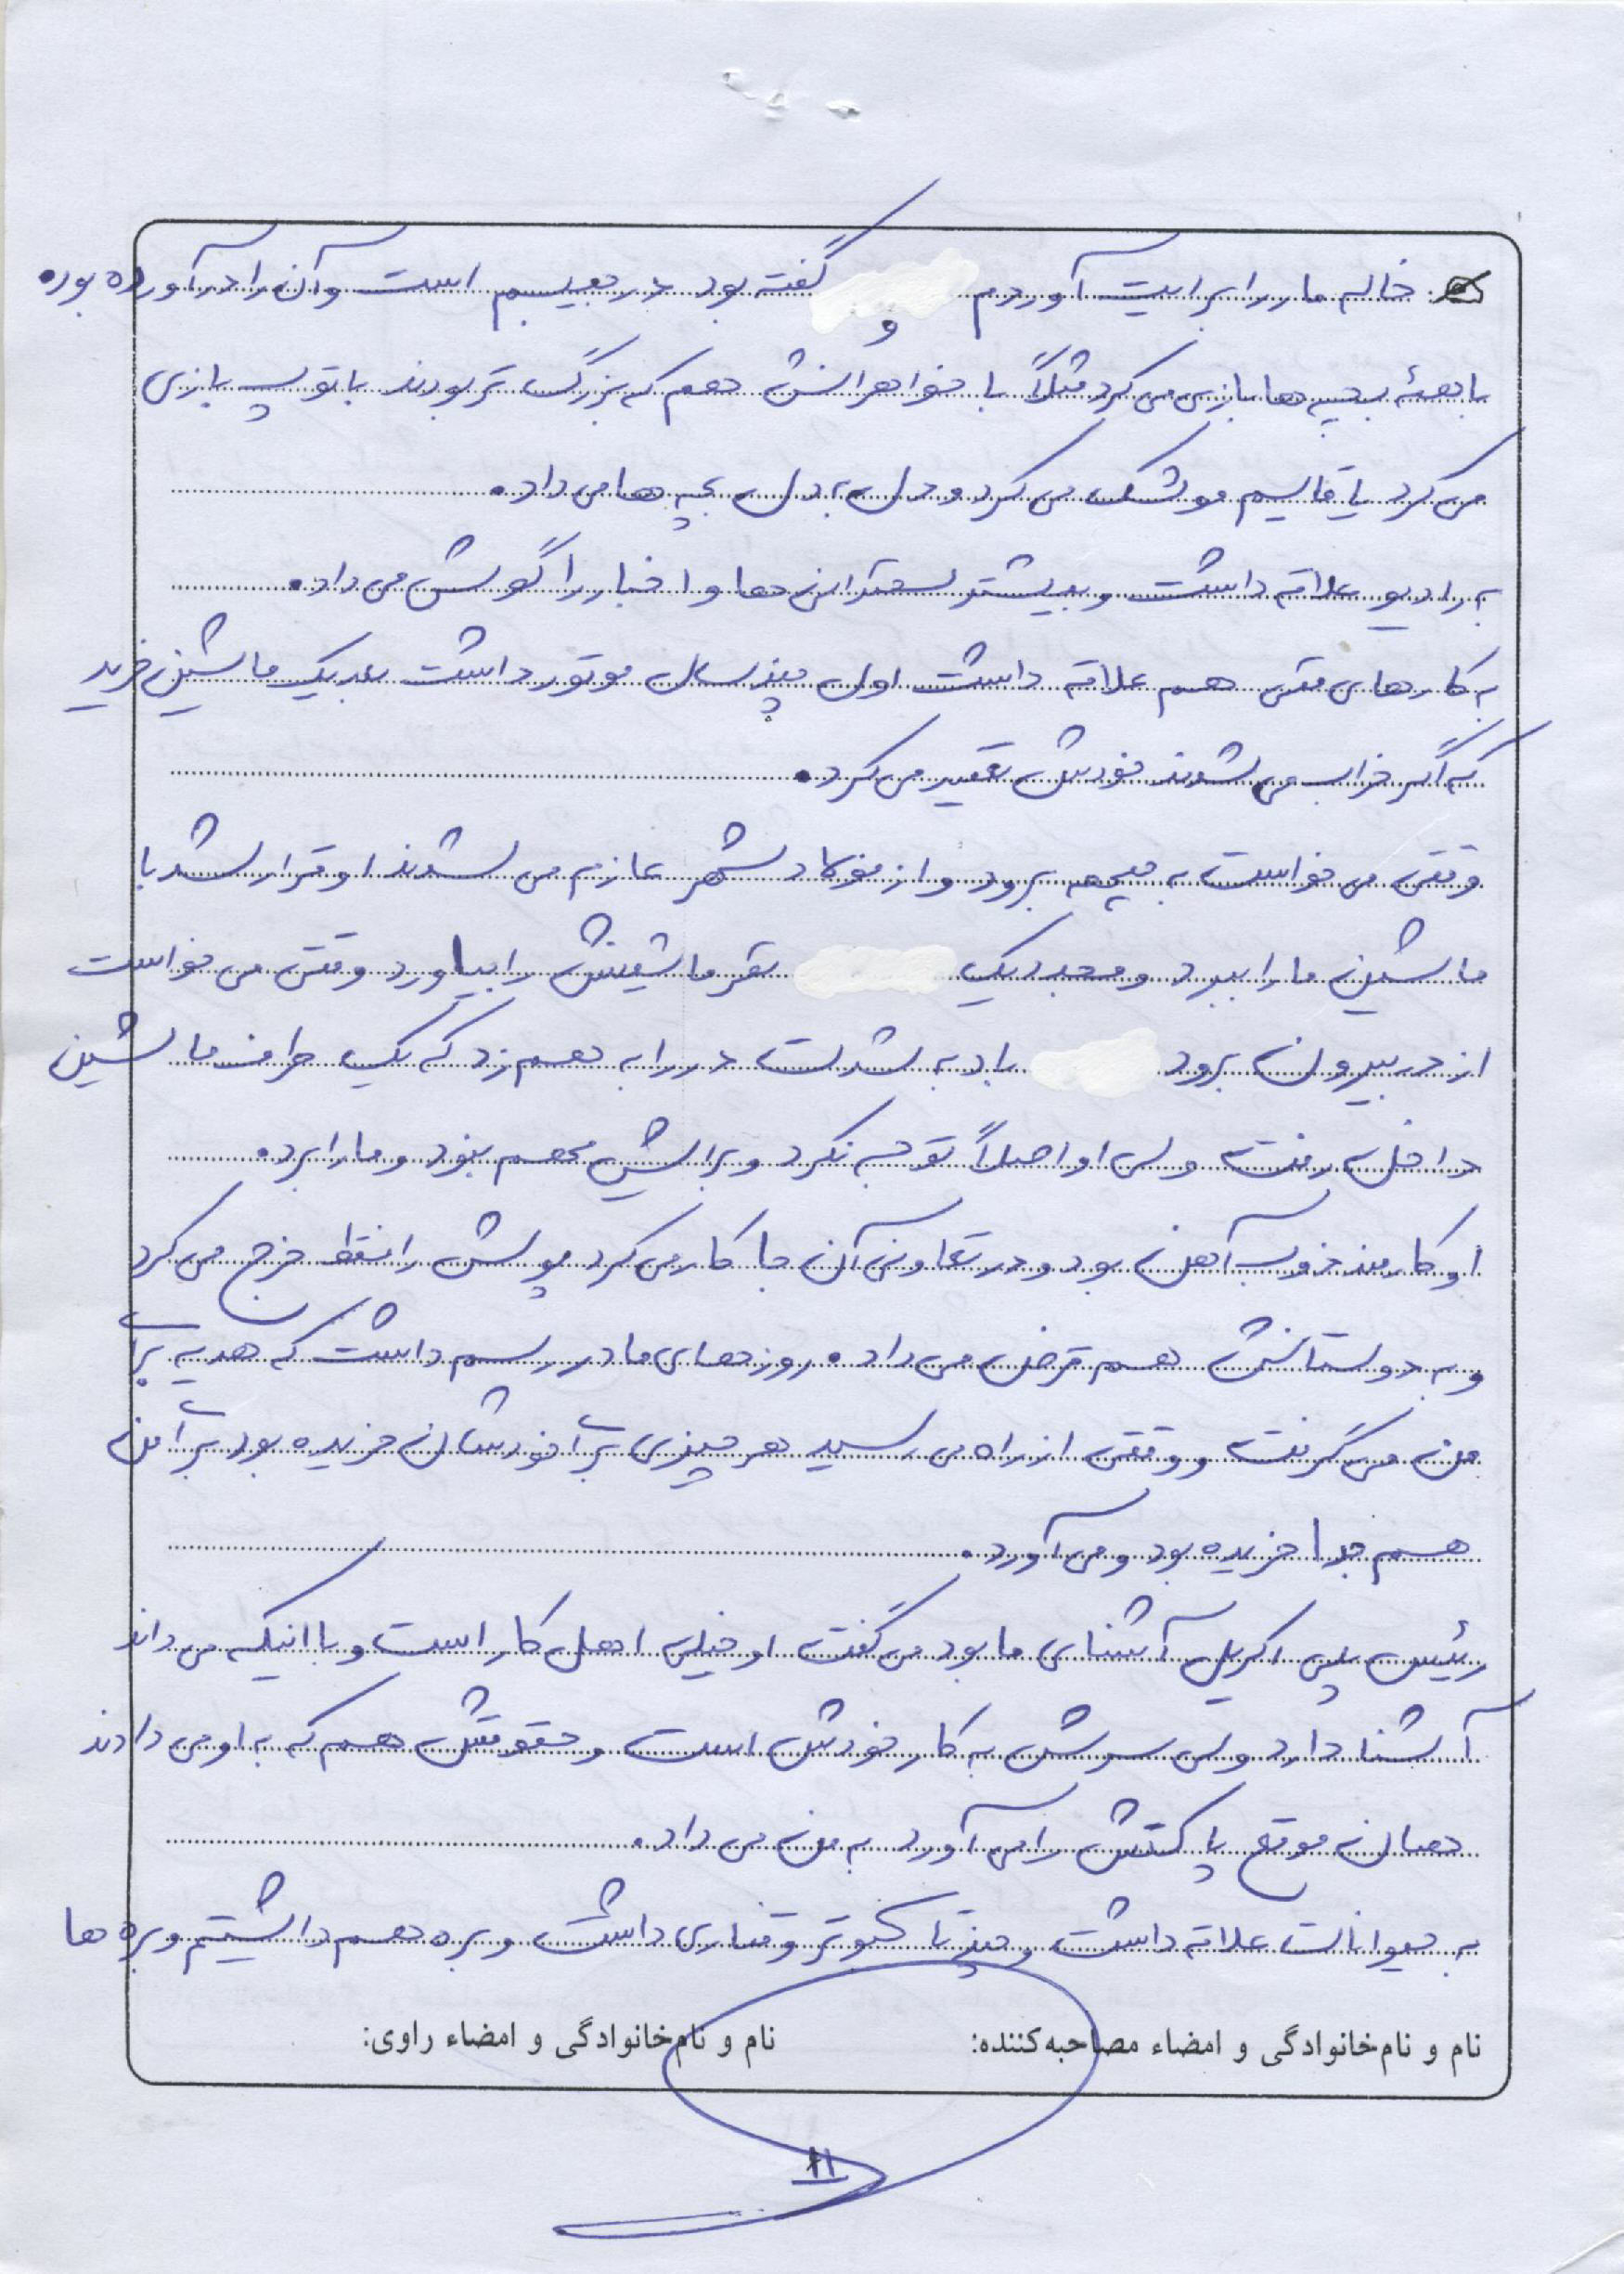 خاله مار را برایت آوردم و گفته بود در جیبم است و آن را درآورده بود.
با همهٔ بچه ها بازی می کرد مثلاً با خواهرانش هم که بزرگ تر بودند با توپ بازی
می کرد یا قایم موشک می کرد و دل به دل بچه ها می داد.
به رادیو علاقه داشت و بیشتر سخنرانی ها و اخبار را گوش می داد.
به کارهای فنی هم علاقه داشت اول چند سال موتور داشت بعد یک ماشین خرید
که اگر خراب می شدند خودش تعمیر می کرد.
وقتی می خواست به جبهه برود و از فولادشهر عازم می شدند او قرار شد با
ماشین ما را ببرد و مجدد یک نفر ماشینش را بیاورد وقتی می خواست
از در بیرون برود باد به شدت در را به هم زد که یک طرف ماشین
داخل رفت ولی او اصلاً توجه نکرد و برایش مهم نبود و ما را برد.
او کارمند ذوب آهن بود و در تعاونی آن جا کار می کرد پولش را فقط خرج می کرد
و به دوستانش هم قرض می داد. روزهای مادر رسم داشت که هدیه برا
من می گرفت و وقتی از راه می رسید هر چیزی برا خودشان خریده بود برا من
هم جدا خریده بود و می آورد.
رئیس پلی اکریل آشنای ما بود می گفت او خیلی اهل کار است و با اینکه می داند
آشنا دارد ولی سرش به کار خودش است و حقوقش هم که به او می دادند
همان موقع پاکتش را می آورد به من می داد.
به حیوانات علاقه داشت و چند تا کبوتر و قناری داشت و بره هم داشتیم و بره ها
نام و نام‌خانوادگی و امضاء مصاحبه‌کننده: نام و نام‌خانوادگی و امضاء راوی:
۱۱